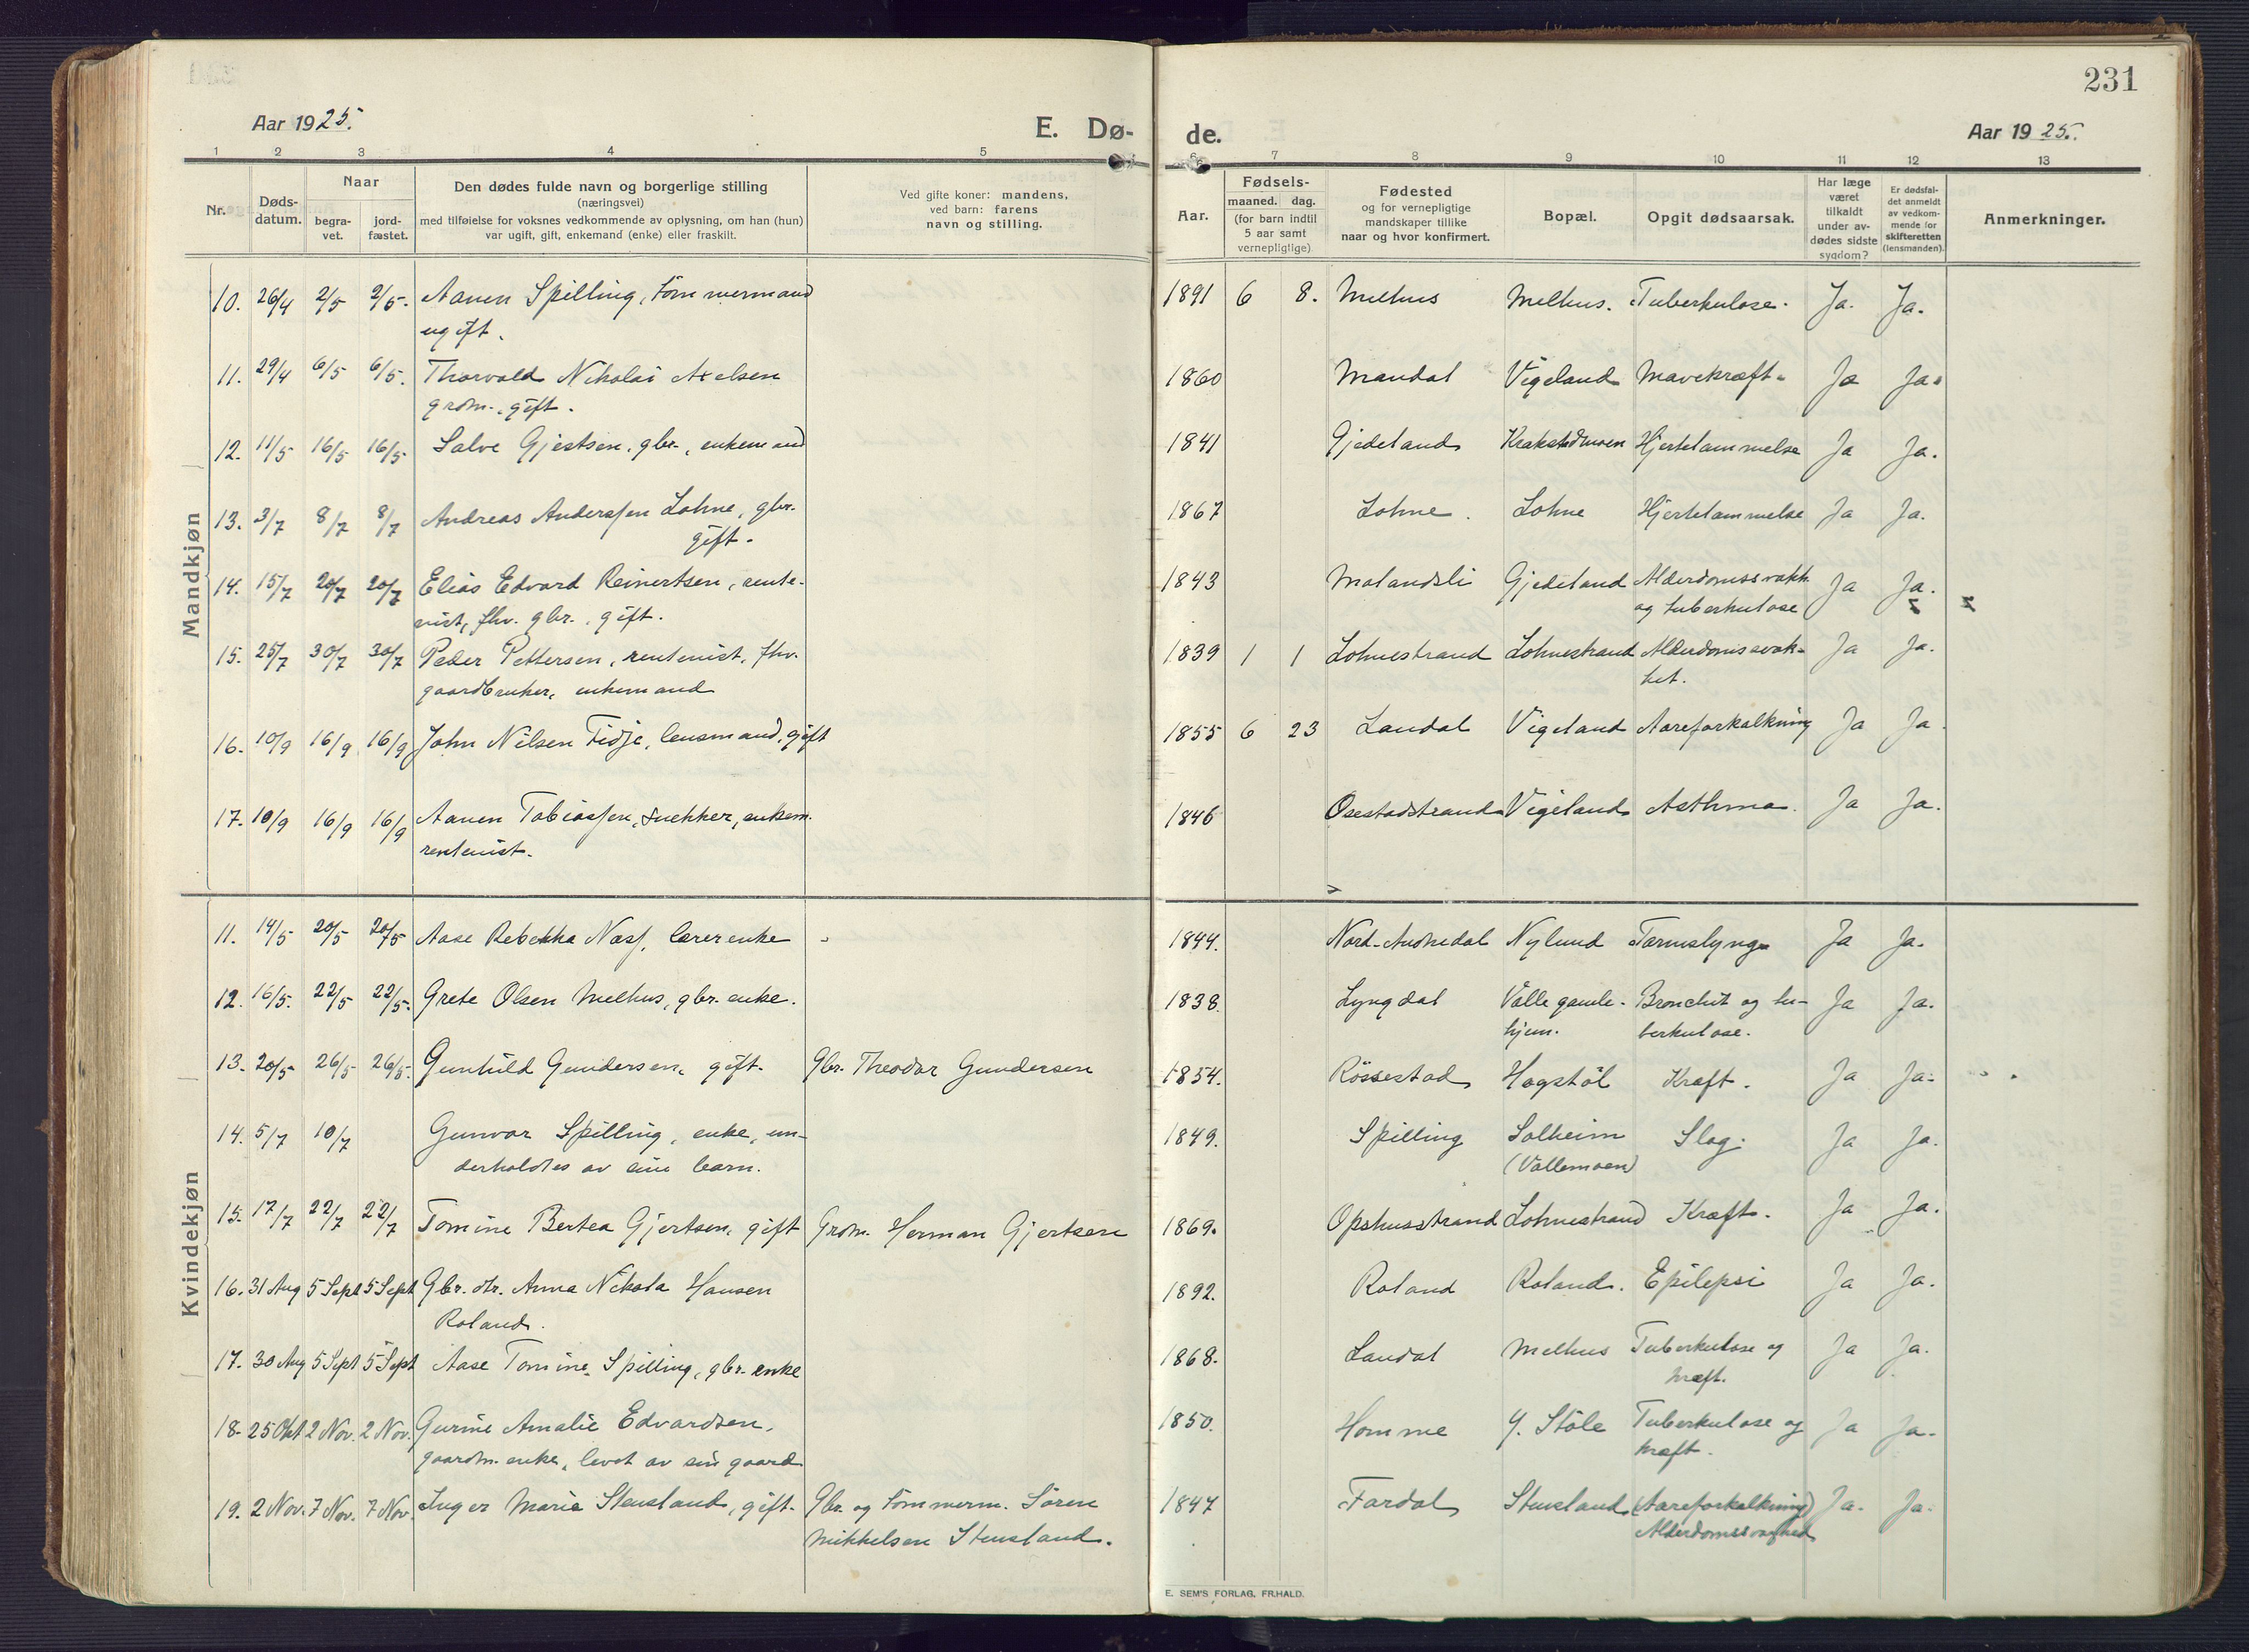 231
Aar 1925.
E. Dø-
de.
Aar 1925.
1 2 3 4 5 6 7 8 9 10 11 12 13
Nr.
Døds-
datum.
Naar
begra-
vet.
jord-
fæstet.
Den dødes fulde navn og borgerlige stilling
(næringsvei)
med tilføielse for voksnes vedkommende av oplysning, om han (hun)
var ugift, gift, enkemand (enke) eller fraskilt.
Ved gifte koner: mandens,
ved barn: farens
navn og stilling.
Aar.
Fødsels-
maaned. dag.
(for barn indtil
5 aar samt
vernepligtige)
Fødested
og for vernepligtige
mandskaper tillike
naar og hvor konfirmert.
Bopæl.
Opgit dødsaarsak.
Har læge
været
tilkaldt
under av-
dødes sidste
sygdom?
Er dødsfal-
det anmeldt
av vedkom-
mende for
skifteretten
(lensmanden).
Anmerkninger.
Mandkjøn
10. 26/4 2/5 2/5. Aanen Spilling, tømmermand 1891 6 8. Melhus Melhus. Tuberkulose. Ja. Ja.
ugift.
11. 29/4 6/5 6/5. Thorvald Nikolai Axelsen 1860 Mandal Vigeland Mavekræft. Ja Ja.
grdm., gift.
12. 11/5 16/5 16/5 Salve Gjertsen, gbr., enkemand 1841 Gjedeland Hjertelammelse Ja Ja.
13. 3/7 8/7 8/7 Andreas Anderssen Lohne, gbr. 1867 Lohne. Lohne Hjertelammelse Ja Ja.
gift.
14. 15/7 20/7 20/7 Elias Edvard Reinertsen, rente- 1843 Molandsli Gjedeland Alderdomssvakh. Ja Ja.
nist, fhv. gbr., gift. og tuberkulose
15. 25/7 30/7 30/7 Peder Pettersen, rentenist, fhv. 1839 1 1 Lohnestrand Lohnestrand Alderdomssvak- Ja Ja.
gaardbruker, enkemand het.
16. 10/9 16/9 16/9 John Nilsen Tidje, lensmand, gift 1855 6 23 Laudal Vigeland Aareforkalkning Ja Ja.
17. 10/9 16/9 16/9 Aanen Tobiassen, snekker, enkem. 1846 Osestadstrand Vigeland Asthma. Ja Ja.
rentenist.
Kvindekjøn
11. 14/5 20/5 20/5 Aase Rebekka Næss, lærerenke 1844. Nord-Audnedal Nylund Tarmslyng Ja Ja.
12. 16/5. 22/5 22/5. Grete Olsen Melhus, gbr. enke. 1838. Lyngdal Valle gamle- Bronchit og tu- Ja Ja.
hjem. berkulose.
13. 20/5 26/5 26/5. Gunhild Gundersen, gift. Gbr. Theodor Gundersen 1854. Røssestad Hogstøl Kræft. Ja Ja.
14. 5/7 10/7 Gunvor Spilling, enke, un- 1849. Spilling Solheim Slag. Ja Ja.
derholdtes av sine barn. (Vallemoen)
15. 17/7 22/7 22/7 Tomine Bertea Gjertsen, gift Grdm. Herman Gjertsen 1869. Opshusstrand Lohnestrand Kræft. Ja Ja.
16. 31 Aug 5 Sept 5 Sept Gbr. dtr. Anna Nikola Hansen 1892. Roland Roland. Epilepsi Ja Ja.
Roland.
17. 30 Aug 5 Sept 5 Sept Aase Tomine Spilling, gbr. enke 1868. Laudal Melhus Tuberkulose og Ja Ja.
kræft.
18. 25 Okt 2 Nov. 2 Nov. Gurine Amalie Edvardsen, 1850. Homme Y. Støle Tuberkulose og Ja Ja.
gaardm. enke, levet av sin gaard kræft.
19. 2 Nov. 7 Nov. 7 Nov. Inger Marie Stensland, gift. Gbr. og tømmerm. Søren 1847 Fardal Stensland (Aareforkalkning) Ja. Ja.
Mikkelsen Stensland. Alderdomssvaghed
E. SEM'S FORLAG, FR.HALD.